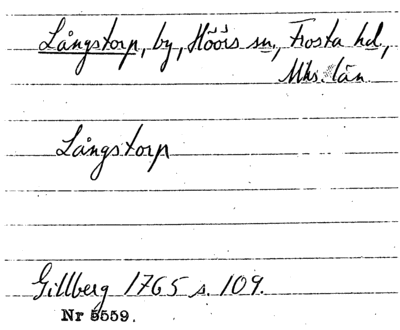 Långstorp, by, Höörs sn., Frosta hd.,
Mhs. län
Långstorp
Gillberg 1765 s. 109.
Nr 5559.